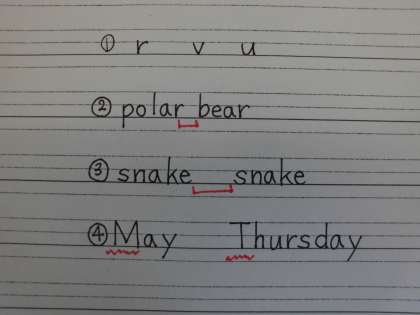 ① r v u
② polar bear
③ snake snake
④ May Thursday